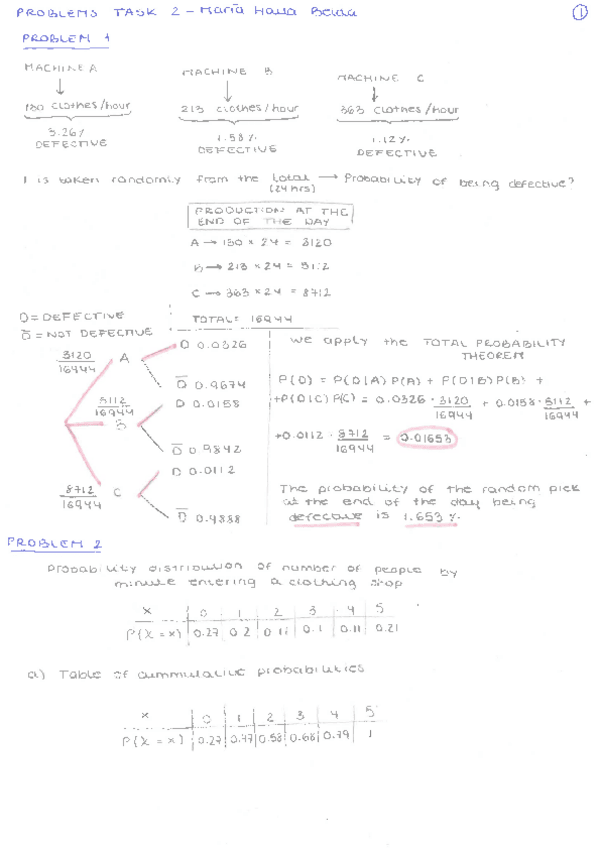 PROBLEMS TASK 2 - María
1
PROBLEM 1
MACHINE A MACHINE B MACHINE C
130 clothes/hour 213 clothes/hour 363 clothes/hour
3.26% DEFECTIVE 1.58% DEFECTIVE 1.12% DEFECTIVE
1 is taken randomly from the total → Probability of being defective?
(24 hrs)
PRODUCTION AT THE
END OF THE DAY
A → 130 × 24 = 3120
B → 213 × 24 = 5112
C → 363 × 24 = 8712
TOTAL: 16944
D = DEFECTIVE
D̅ = NOT DEFECTIVE
3120/16944 A
D 0.0326
D̅ 0.9674
5112/16944 B
D 0.0158
D̅ 0.9842
8712/16944 C
D 0.0112
D̅ 0.9888
We apply the TOTAL PROBABILITY
THEOREM
P(D) = P(D|A) P(A) + P(D|B) P(B) +
+P(D|C) P(C) = 0.0326 · 3120/16944 + 0.0158 · 5112/16944 +
+0.0112 · 8712/16944 = 0.01653
The probability of the random pick
at the end of the day being
defective is 1.653 %.
PROBLEM 2
Probability distribution of number of people by
minute entering a clothing shop
x 0 1 2 3 4 5
P(X = x) 0.27 0.2 0.11 0.1 0.11 0.21
a) Table of cummulative probabilities
x 0 1 2 3 4 5
P(X = x) 0.27 0.47 0.58 0.68 0.79 1